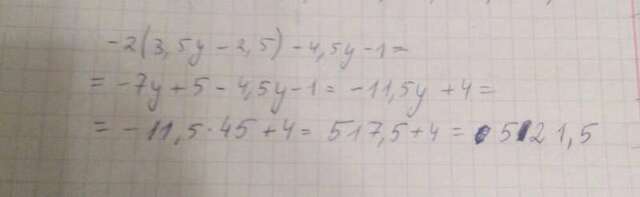 -2(3,5y-2,5)-4,5y-1=
= -7y+5-4,5y-1 = -11,5y+4=
= -11,5·45+4= 517,5+4 = 521,5